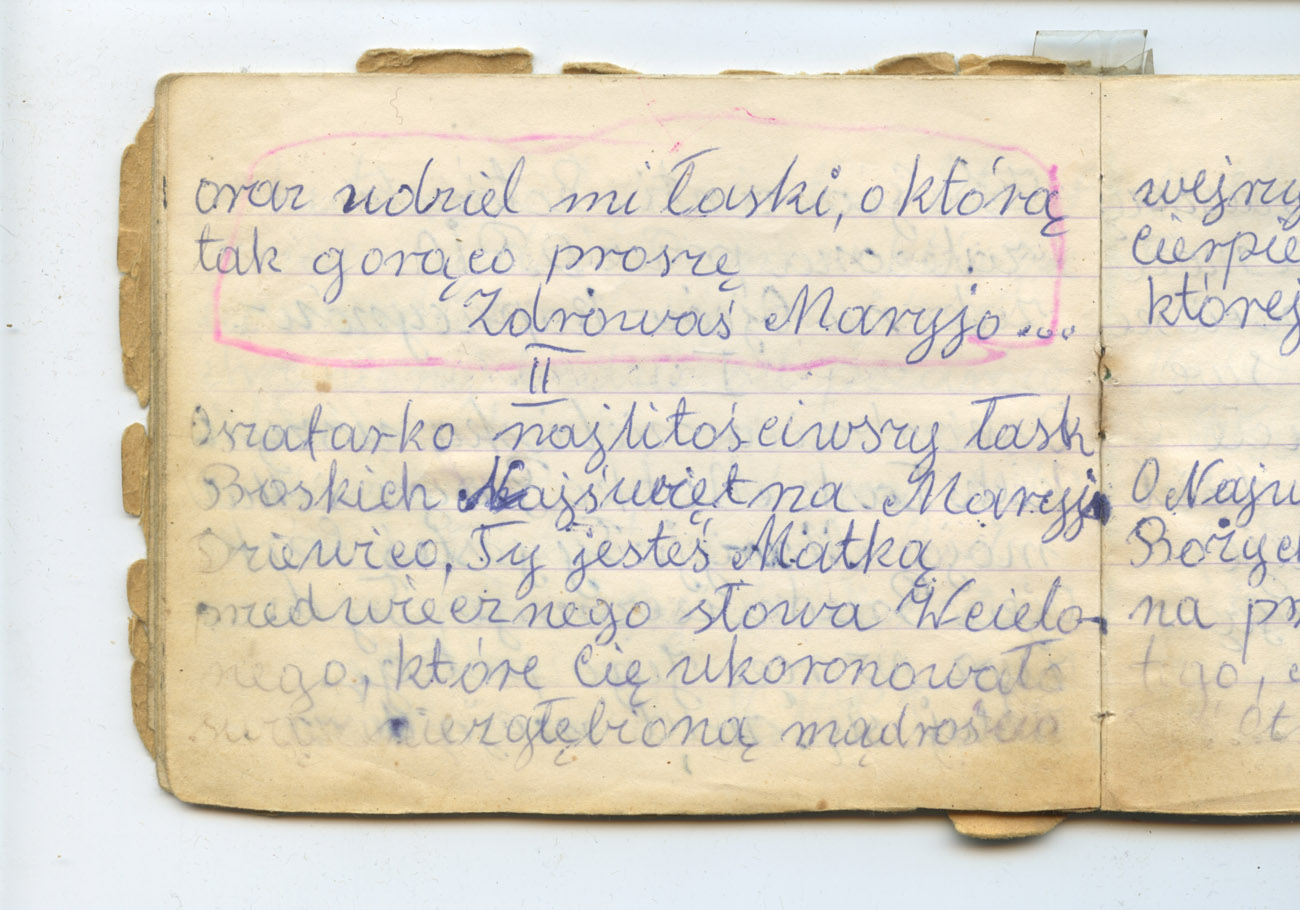 oraz udziel mi łaski, o którą
tak gorąco proszę
Zdrowaś Maryjo...
II
Oszafarko najlitościwszy łask
Boskich Najświętna Maryjo
Dziewico, Ty jesteś Matką
przedwiecznego słowa Wcielo-
nego, które Cię ukoronowało
swą niezgłębioną mądrością
wejrzy
Cierpie
której
O Najw
Bożych
na pr
tego,